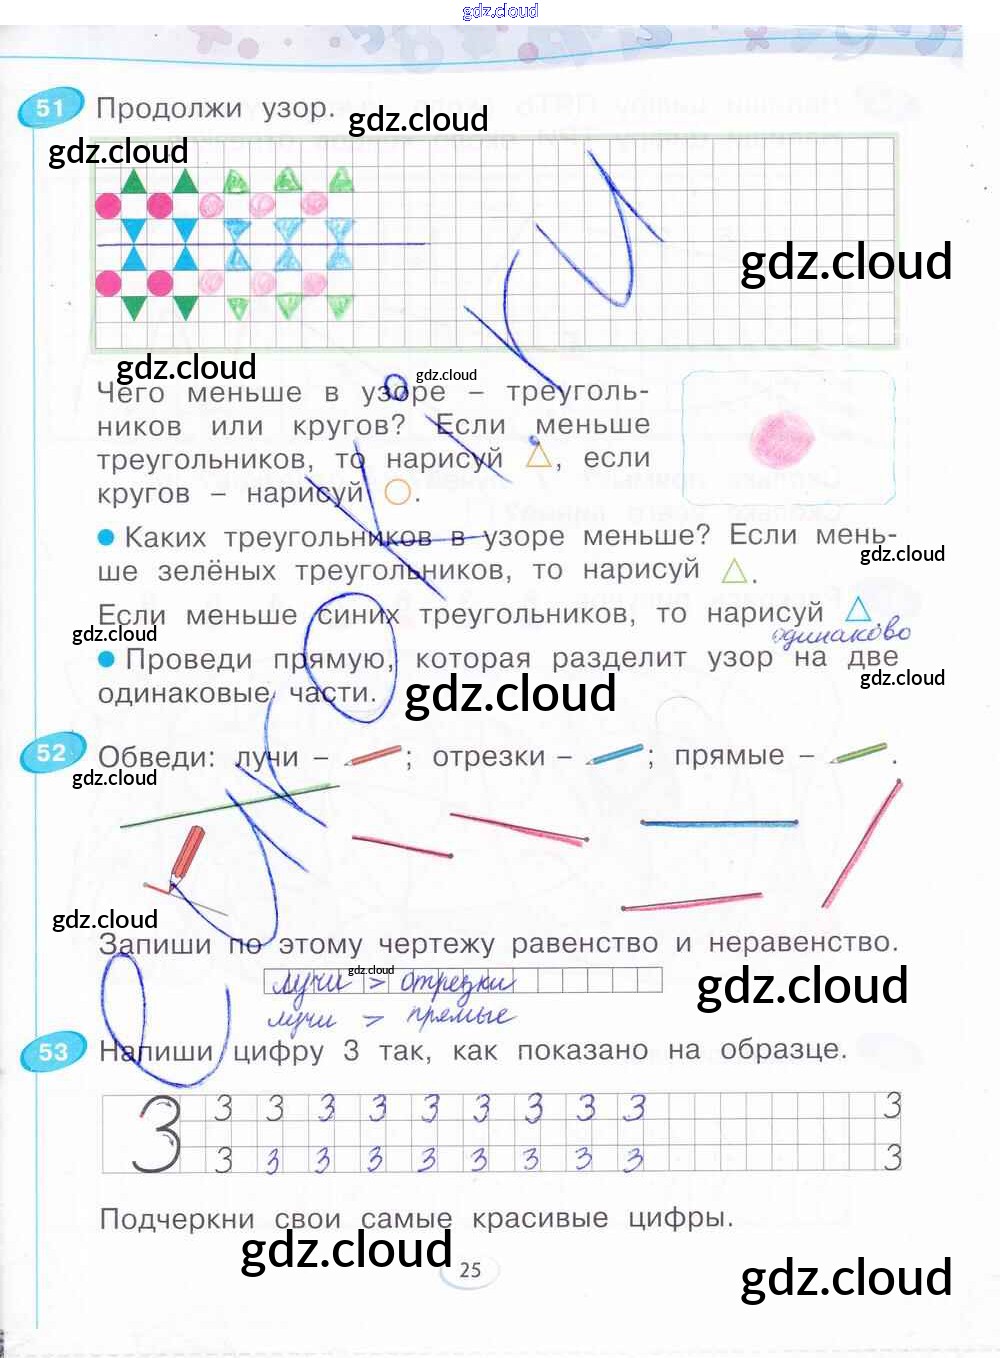 gdz.cloud
51 Продолжи узор.
gdz.cloud
gdz.cloud
gdz.cloud
gdz.cloud
gdz.cloud
Чего меньше в узоре – треуголь-
ников или кругов? Если меньше
треугольников, то нарисуй △, если
кругов – нарисуй ○.
• Каких треугольников в узоре меньше? Если мень-
gdz.cloud
ше зелёных треугольников, то нарисуй △.
Если меньше синих треугольников, то нарисуй △.
gdz.cloud
одинаково
• Проведи прямую, которая разделит узор на две
одинаковые части.
gdz.cloud
gdz.cloud
52 Обведи: лучи – ; отрезки – ; прямые – .
gdz.cloud
gdz.cloud
Запиши по этому чертежу равенство и неравенство.
gdz.cloud
лучи > отрезки
gdz.cloud
лучи > прямые
53 Напиши цифру 3 так, как показано на образце.
3 3 3 3 3 3 3 3 3 3 3
3 3 3 3 3 3 3 3 3 3
Подчеркни свои самые красивые цифры.
gdz.cloud
25
gdz.cloud